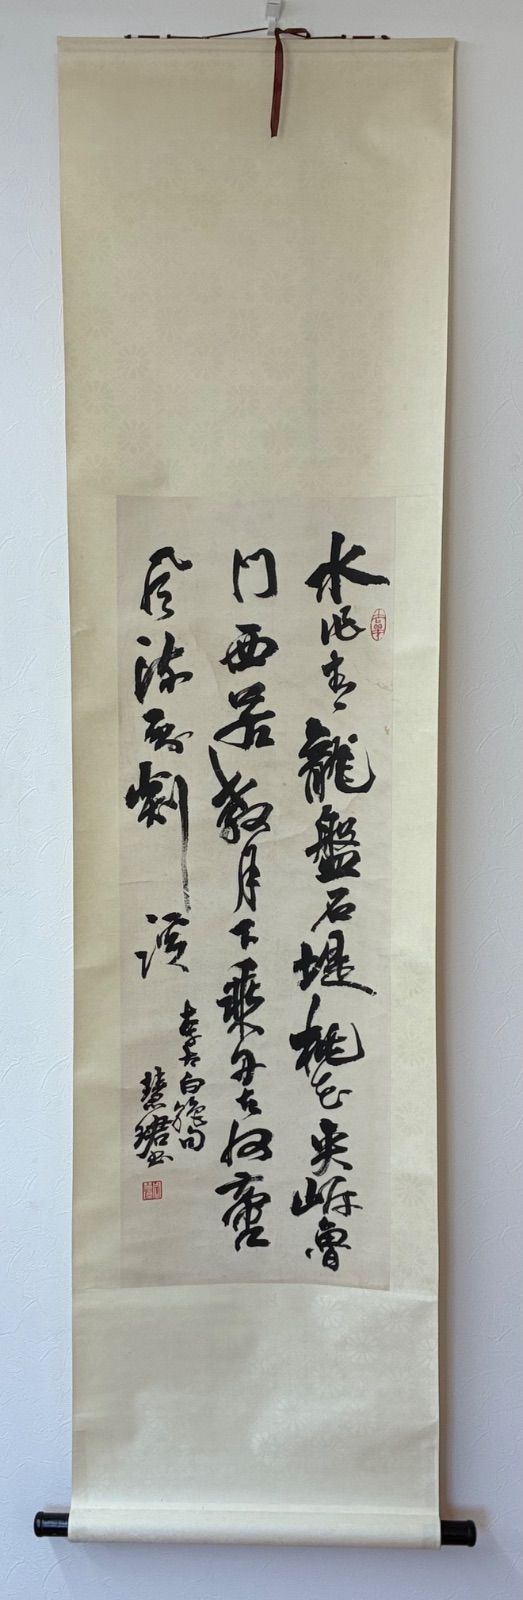 水作青龍盤石堤桃花夾岸魯
門西若教月下乘舟去何啻
風流到剡溪
李太白絕句
慧珺書